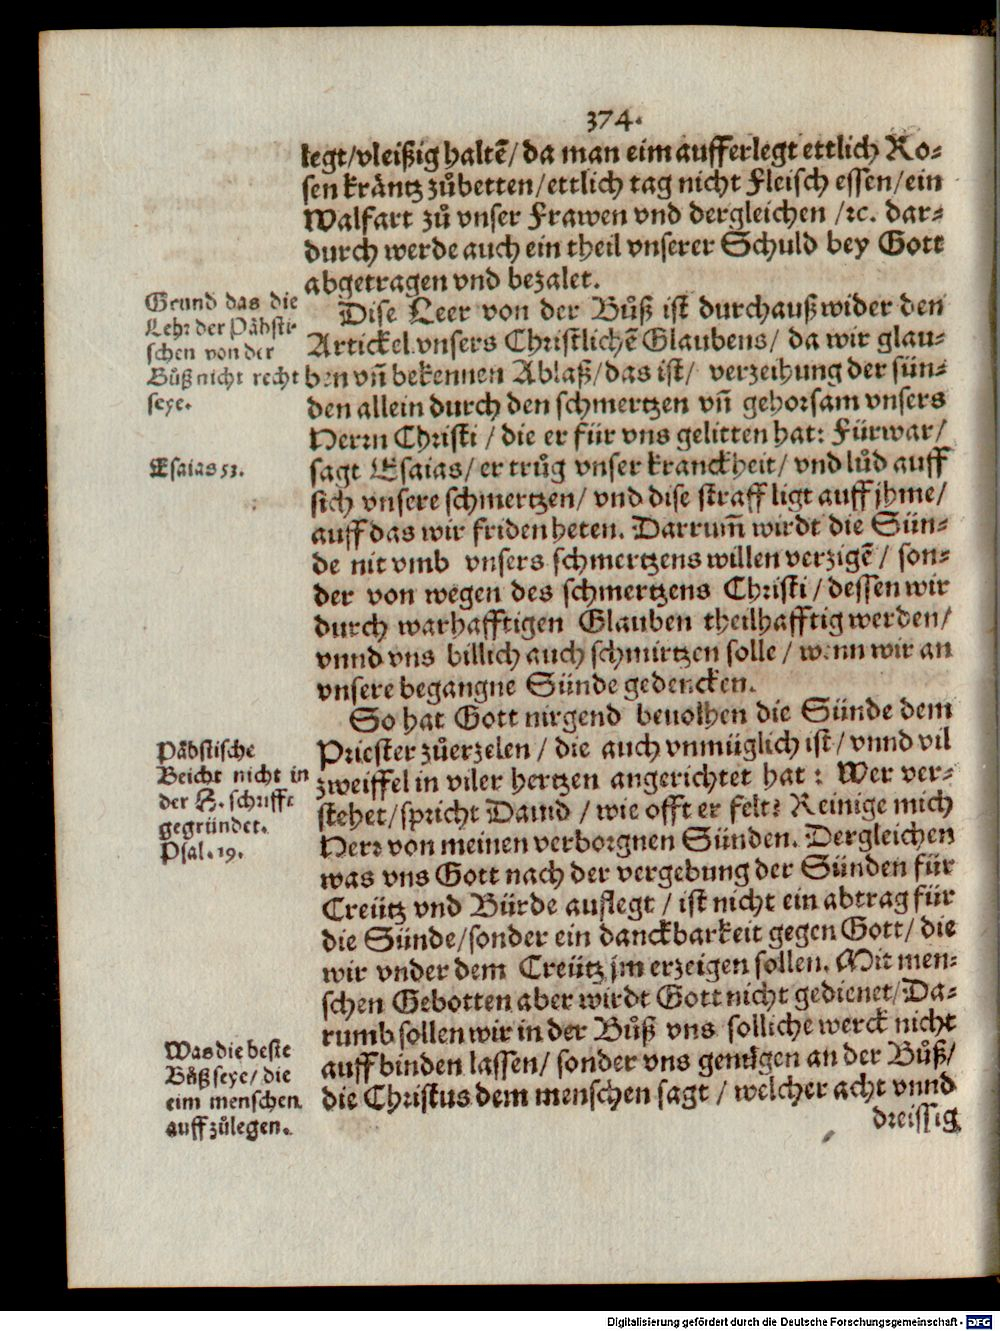 374.
legt/vleißig haltẽ/ da man eim aufferlegt ettlich Ro-
sen kräntz zůbetten/ettlich tag nicht Fleisch essen/ein
Walfart zů vnser Frawen vnd dergleichen /ꝛc. dar-
durch werde auch ein theil vnserer Schuld bey Gott
abgetragen vnd bezalet.
Grund das die
Lehr der Päbsti-
schen von der
Bůß nicht recht
seye.
Dise Leer von der Bůß ist durchauß wider den
Artickel vnsers Christlichẽ Glaubens/ da wir glau-
ben vñ bekennen Ablaß/das ist/ verzeihung der sün-
den allein durch den schmertzen vñ gehorsam vnsers
Herrn Christi / die er für vns gelitten hat: Fürwar/
Esaias 53.
sagt Esaias/ er trůg vnser kranckheit/ vnd lůd auff
sich vnsere schmertzen/ vnd dise straff ligt auff jhme/
auff das wir friden heten. Darrum̃ wirdt die Sün-
de nit vmb vnsers schmertzens willen verzigẽ / son-
der von wegen des schmertzens Christi / dessen wir
durch warhafftigen Glauben theilhafftig werden/
vnnd vns billich auch schmirtzen solle / wenn wir an
vnsere begangne Sünde gedencken.
So hat Gott nirgend beuolhen die Sünde dem
Päbstische
Beicht nicht in
der H. schrifft
gegründet.
Psal. 19.
Priester zůerzelen / die auch vnmüglich ist / vnnd vil
zweiffel in viler hertzen angerichtet hat : Wer ver-
stehet/spricht Dauid / wie offt er felt? Reinige mich
Herr von meinen verborgnen Sünden. Dergleichen
was vns Gott nach der vergebung der Sünden für
Creütz vnd Bürde auflegt / ist nicht ein abtrag für
die Sünde/sonder ein danckbarkeit gegen Gott/ die
wir vnder dem Creütz jm erzeigen sollen. Mit men-
schen Gebotten aber wirdt Gott nicht gedienet/Da-
rumb sollen wir in der Bůß vns solliche werck nicht
Was die beste
Bůß seye/ die
eim menschen
auff zůlegen.
auff binden lassen/ sonder vns genůgen an der Bůß/
die Christus dem menschen sagt / welcher acht vnnd
dreissig
Digitalisierung gefördert durch die Deutsche Forschungsgemeinschaft - DFG